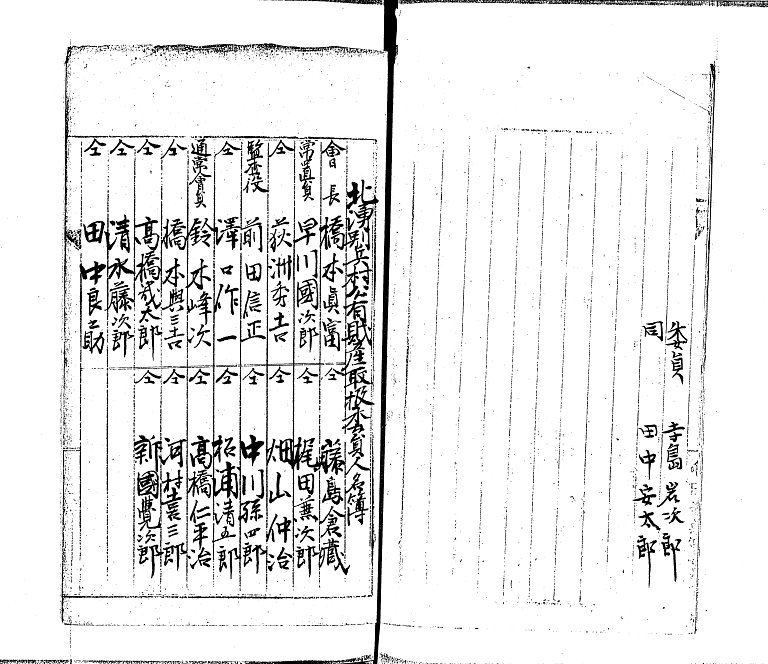 委員 寺島岩次郎
同 田中安太郎
北湧別兵村公有財産取扱委員人名簿
會長 橋本眞富
常置員 早川國次郎
仝 荻洲
監査役 前田信正
仝 澤口作一
通常會員 鈴木峰次
仝 橋本與三吉
仝 高橋武太郎
仝 清水藤次郎
仝 田中良之助
仝 藤島倉藏
仝 梶田兼次郎
仝 畑山仲治
仝 中川孫四郎
仝 松浦清五郎
仝 高橋仁平治
仝 河村三郎
仝 新國覺次郎